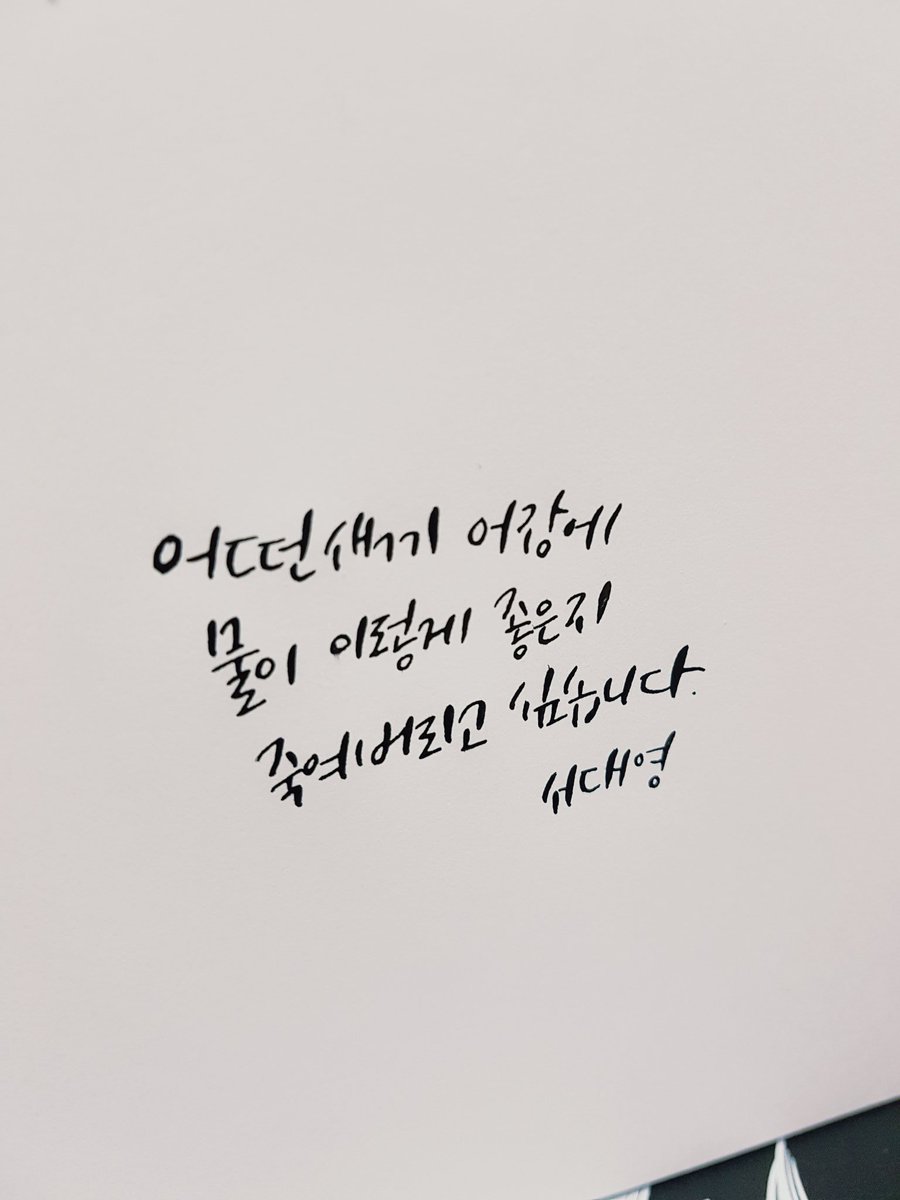 어떤새끼 어장에
물이 이렇게 좋은지
죽여버리고 싶습니다.
서대영